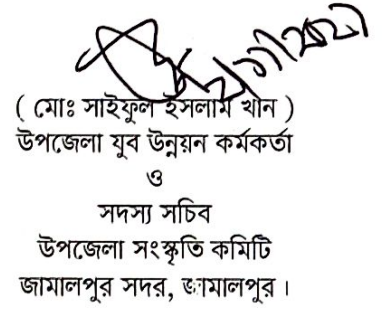 ( মোঃ সাইফুল ইসলাম খান )
উপজেলা যুব উন্নয়ন কর্মকর্তা
ও
সদস্য সচিব
উপজেলা সংস্কৃতি কমিটি
জামালপুর সদর, জামালপুর ।